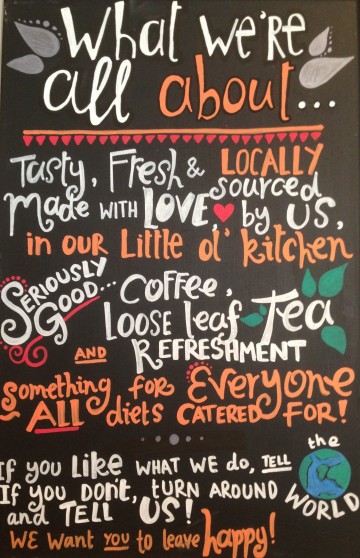 What we're
all about...
Tasty, Fresh & LOCALLY
sourced
Made WITH LOVE, by US,
in OUR Little ol' kitchen
SERIOUSLY
GOOD... COFFEE,
LOOSE leaf Tea
AND REFRESHMENT
Something FOR Everyone
ALL diets CATERED FOR!
If you Like WHAT WE DO, TELL the WORLD
If you DON'T, TURN AROUND
and TELL US!
WE Want YOU to leave happy!